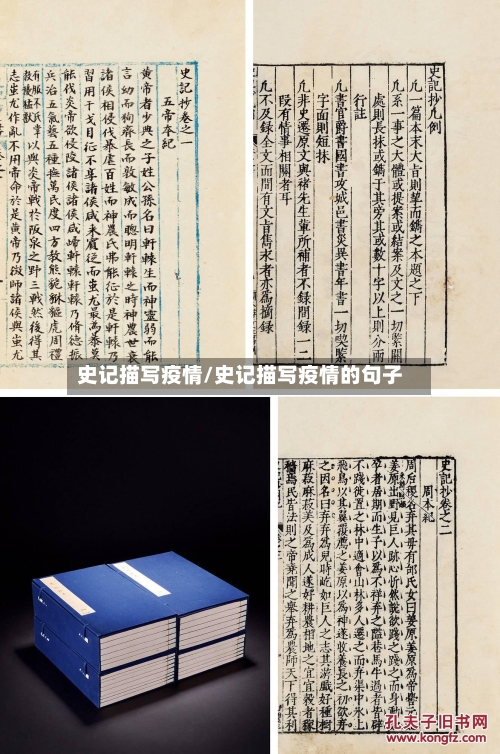 史記抄卷之一
五帝本紀
黃帝者少典之子姓公孫名曰軒轅生而神靈弱而能
言幼而徇齊長而敦敏成而聰明軒轅之時神農世衰
諸侯相侵伐暴虐百姓而神農氏弗能征於是軒轅乃
習用干戈以征不享諸侯咸來賓從而蚩尤最為暴莫
能伐炎帝欲侵陵諸侯諸侯咸歸軒轅軒轅乃脩德振
兵治五氣藝五種撫萬民度四方教熊貔貅貙虎周禮
有服不氏掌以與炎帝戰於阪泉之野三戰然後得其
志蚩尤作亂不用帝命於是黃帝乃徵師諸侯與蚩尤
史記抄凡例
凡一篇本末大旨則挈而鐫之本題之下
凡系一事之大體或提案或結案及文之一切緊關
處則長抹或鐫于其旁其或數十字以上則分兩
行註
凡書官爵書國書攻城邑書災異書年書一切喫緊
字面則短抹
凡非史遷原文與褚先生輩所補者不錄間錄一二
段有情事相關者耳
凡不及錄全文而間有文旨雋永者亦為摘錄
史记描写疫情/史记描写疫情的句子
史記抄卷之二
周本紀
周后稷名弃其母有邰氏女曰姜原姜原為帝嚳元
姜原出野見巨人跡心忻然說欲踐之踐之而身動
居期而生子以為不祥弃之隘巷馬牛過者皆辟
不踐徙置之林中適會山林多人遷之而弃渠中冰上
飛鳥以其翼覆薦之姜原以為神遂收養長之初欲弃
之因名曰弃弃為兒時屹如巨人之志其游戲好種樹
麻菽麻菽美及為成人遂好耕農相地之宜宜穀者稼
穡焉民皆法則之帝堯聞之舉弃為農師天下得其利
孔夫子旧书网
www.kongfz.com